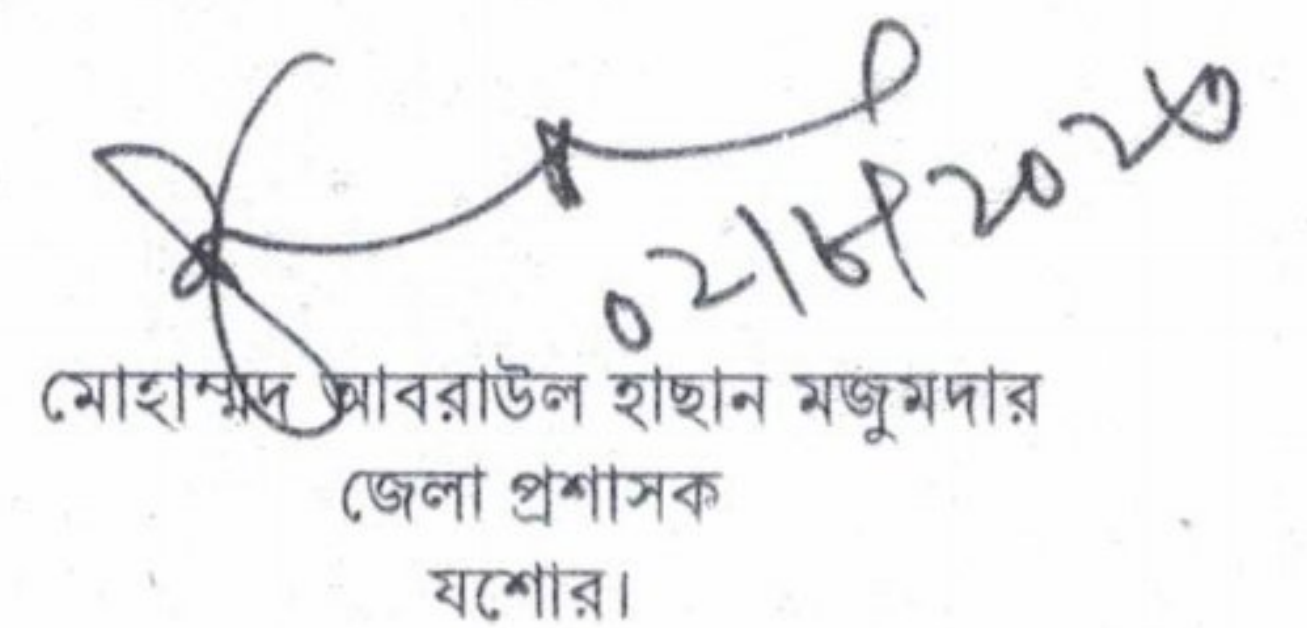 ০২/৮/২০২৩
মোহাম্মদ আবরাউল হাছান মজুমদার
জেলা প্রশাসক
যশোর।